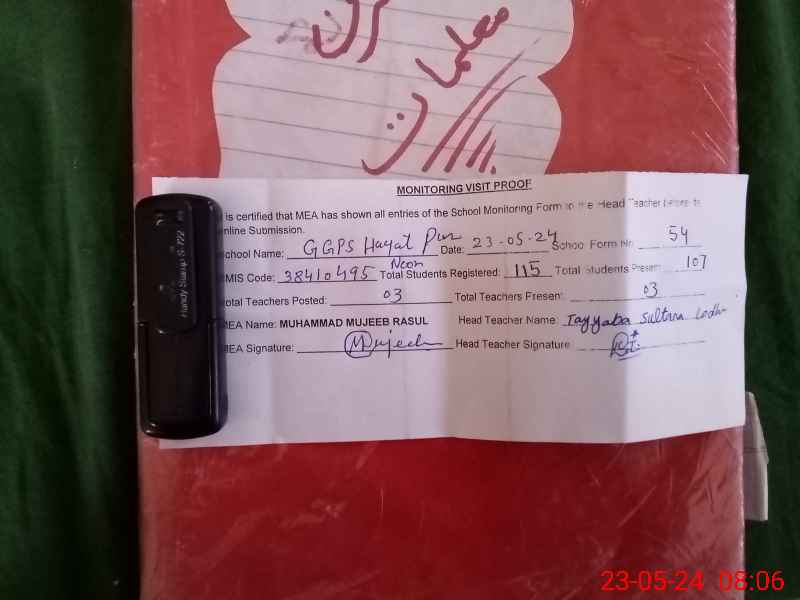 معلمات
MONITORING VISIT PROOF
is certified that MEA has shown all entries of the School Monitoring Form to the Head Teacher before its
nline Submission.
chool Name: GGPS Hayat Pur Date: 23-05-24 School Form No 54
Neon
MIS Code: 38410495 Total Students Registered: 115 Total Students Present 107
otal Teachers Posted: 03 Total Teachers Present: 03
MEA Name: MUHAMMAD MUJEEB RASUL Head Teacher Name: Tayyaba Sultana Lodhi
MEA Signature: Mujeeb Head Teacher Signature
Handy Stamp S-722
23-05-24 08:06